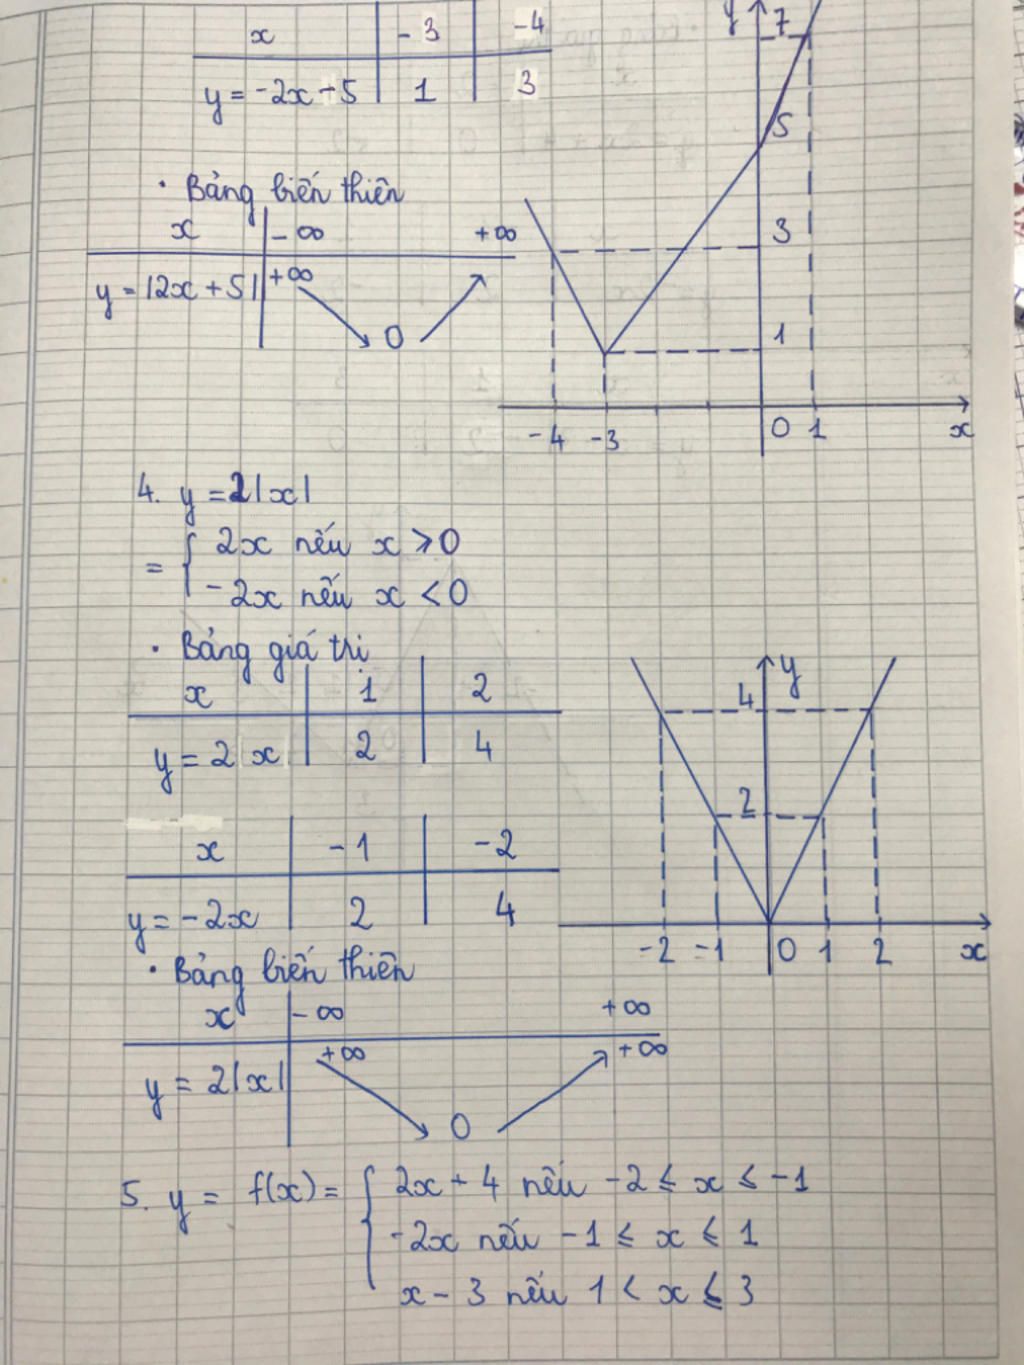 x -3 -4
y = -2x - 5 1 3
y 7
5
3
1
-4 -3 0 1 x
• Bảng biến thiên
x -∞ +∞
y = |2x + 5| +∞ 0
4. y = 2|x|
= { 2x nếu x ⩾ 0
-2x nếu x < 0
• Bảng giá trị
x 1 2
y = 2|x 2 4
x -1 -2
y = -2x 2 4
y
4
2
-2 -1 0 1 2 x
• Bảng biến thiên
x -∞ +∞
y = 2|x| +∞ 0 +∞
5. y = f(x) = { 2x + 4 nếu -2 ≤ x ≤ -1
-2x nếu -1 ≤ x ≤ 1
x - 3 nếu 1 < x ≤ 3